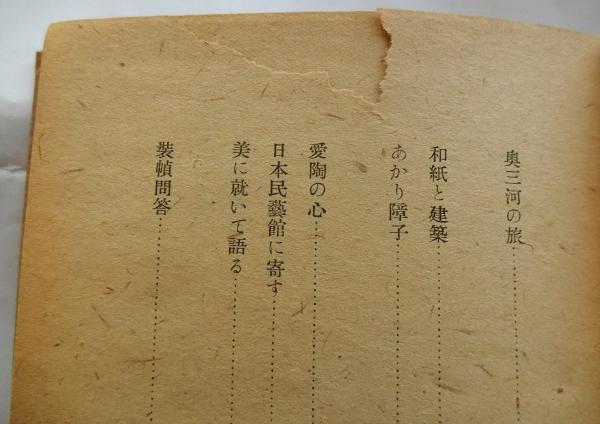 奥三河の旅
和紙と建築
あかり障子
愛陶の心
日本民藝館に寄す
美に就いて語る
裝幀問答